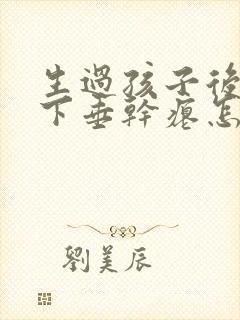 生過孩子後
下垂幹瘪怎
劉美辰